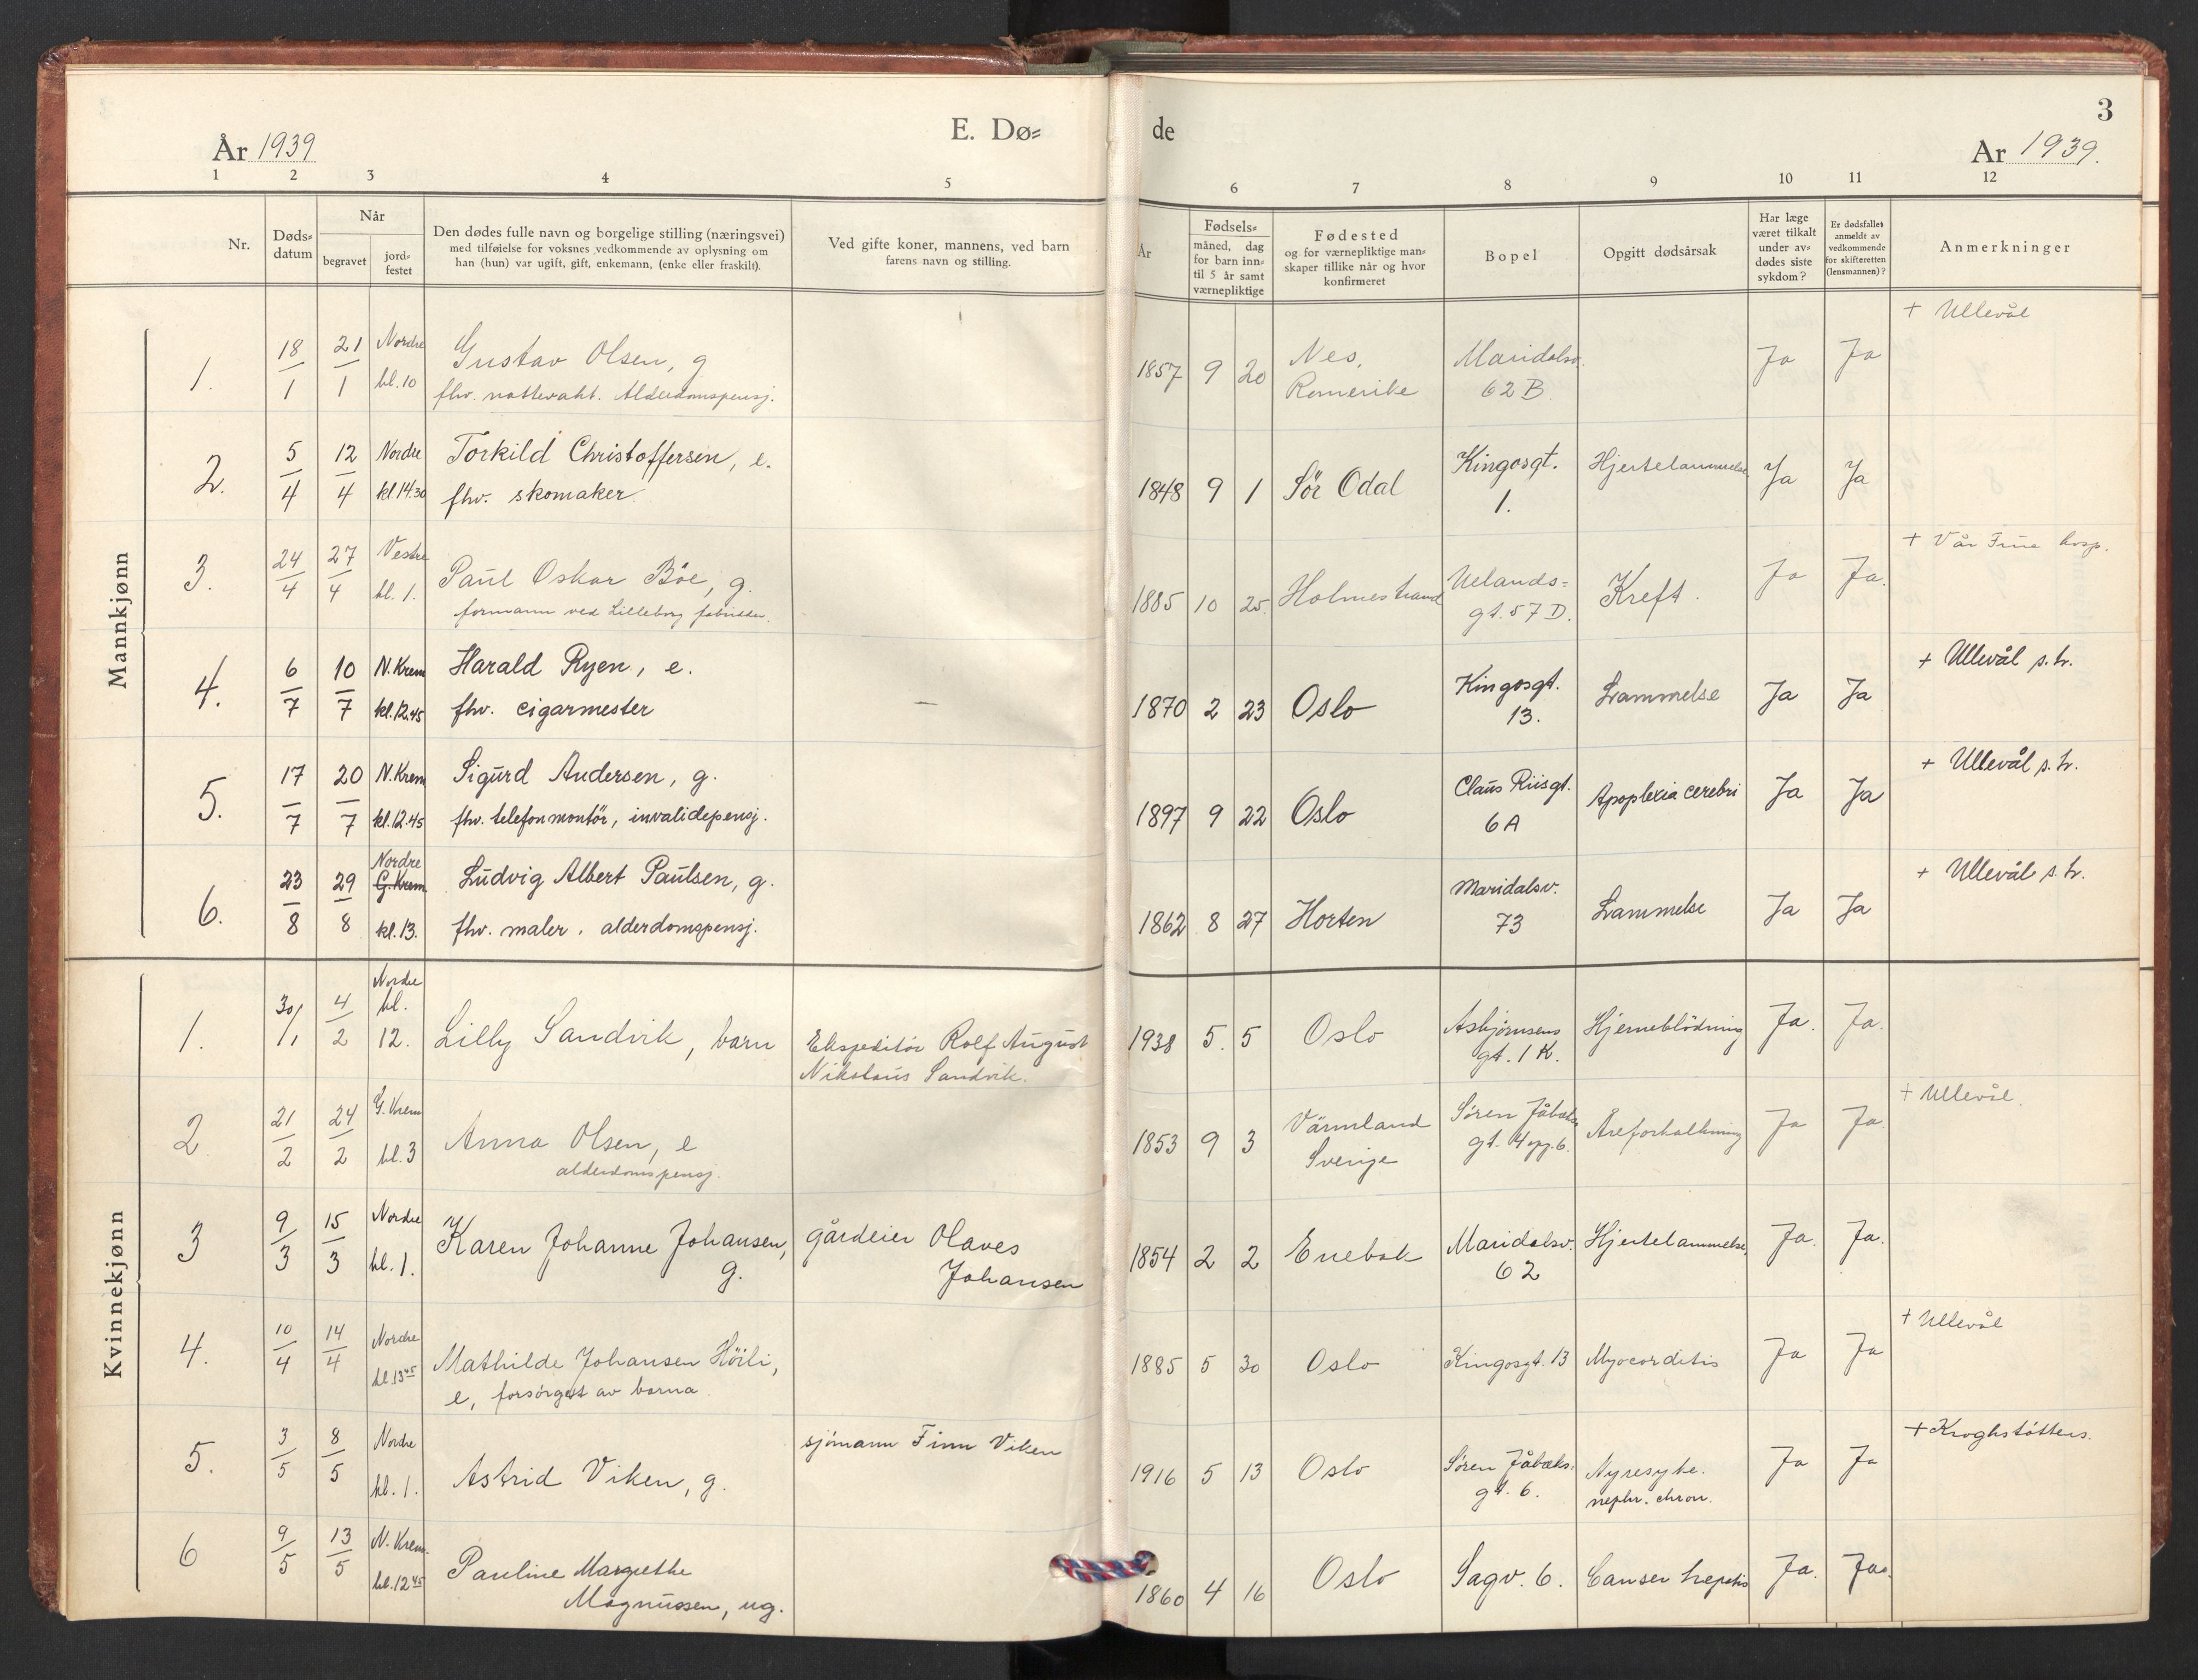 E. Dø= de
3
År 1939
Ar 1939.
1 2 3 4 5 6 7 8 9 10 11 12
Nr.
Døds=
datum
Når
begravet
jord=
festet
Den dødes fulle navn og borgelige stilling (næringsvei)
med tilføielse for voksnes vedkommende av oplysning om
han (hun) var ugift, gift, enkemann, (enke eller fraskilt).
Ved gifte koner, mannens, ved barn
farens navn og stilling.
År
Fødsels=
måned, dag
for barn inn=
til 5 år samt
værnepliktige
Fødested
og for værnepliktige man=
skaper tillike når og hvor
konfirmeret
Bopel
Opgitt dødsårsak
Har læge
været tilkalt
under av=
dødes siste
sykdom?
Er dødsfallet
anmeldt av
vedkommende
for skifteretten
(lensmannen)?
Anmerkninger
Mannkjønn
1. 18/1 21/1 Nordre kl. 10
Gustav Olsen, g
fhv. nattevakt. Alderdomspensj.
1857 9 20 Nes, Romerike
Maridalsv. 62 B.
Ja Ja + Ullevål
2. 5/4 12/4 Nordre kl. 14.30
Torkild Christoffersen, e.
fhv. skomaker.
1848 9 1 Sör Odal
Kingosgt. 1.
Hjertelammelse Ja Ja
3. 24/4 27/4 Vestre kl. 1.
Paul Oskar Böe, g.
formann ved Lilleborg fabrikker.
1885 10 25. Holmestrand
Uelands= gt. 57 D.
Kreft. Ja Ja. + Vår Frue hosp.
4. 6/7 10/7 N. Krem kl. 12.45
Harald Ryen, e.
fhv. cigarmester
—
1870 2 23 Oslo
Kingosgt. 13.
Lammelse Ja Ja + Ullevål s.h.
5. 17/7 20/7 N. Krem kl. 12.45
Sigurd Andersen, g.
fhv. telefonmontör, invalidepensj.
1897 9 22 Oslo
Claus Riisgt. 6A
Apoplexia cerebri Ja Ja + Ullevål s.h.
6. 23/8 29/8 Nordre G. Krem kl. 13.
Ludvig Albert Paulsen, g.
fhv. maler. alderdomspensj.
1862 8 27 Horten
Maridalsv. 73
Lammelse Ja Ja + Ullevål s.h.
Kvinnekjønn
1. 30/1 4/2 Nordre kl. 12.
Lilly Sandvik, barn
Ekspeditör Rolf August
Nikolaus Sandvik.
1938 5. 5 Oslo
Asbjørnsens gt. 1 K.
Hjerneblödning Ja. Ja.
2 21/2 24/2 G. Krem kl. 3
Anna Olsen, e
alderdomspensj.
1853 9 3 Värmland Sverige
Søren Jåbæks gt. 4 opg. 6.
Åreforkalkning Ja Ja. + Ullevål.
3 9/3 15/3 Nordre kl. 1.
Karen Johanne Johansen,
g.
gårdeier Olaves
Johansen
1854 2 2 Enebak
Maridalsv. 62
Hjertelammelse. Ja. Ja.
4. 10/4 14/4 Nordre kl. 13 45
Mathilde Johansen Höili,
e, forsörget av barna.
1885 5 30 Oslo
Kingosgt. 13
Myocarditis Ja Ja + Ullevål
5. 3/5 8/5 Nordre kl. 1.
Astrid Viken, g.
sjömann Finn Viken
1916 5 13 Oslo
Søren Jåbæks. gt. 6.
Nyresyke.
nephr. chron. Ja Ja + Kroghstöttens.
6 9/5 13/5 N. Krem. kl. 12 45
Pauline Margrethe
Magnussen, ug.
1860 4 16 Oslo
Sagv. 6.
Canser hepatis Ja. Ja.